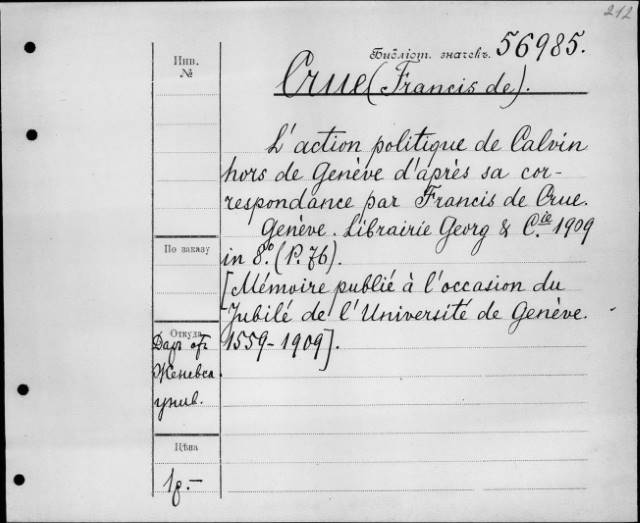 212
Библіот. значекъ. 56985.
Инв.
№
Crue (Francis de).
L'action politique de Calvin
hors de Genève d'après sa cor-
respondance par Francis de Crue.
Genève. Librairie Georg & Cie. 1909
По заказу
in 8º. (P. 76).
[Mémoire publié à l'occasion du
Jubilé de l'Université de Genève.
Откуда
1559-1909].
Даръ отъ
Женевск.
унив.
Цѣна
1р.-